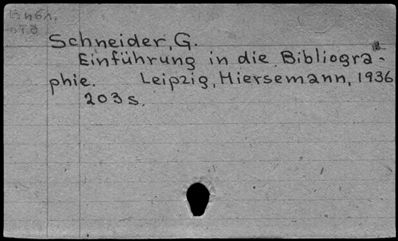 Schneider, G.
Einführung in die Bibliogra-
phie. Leipzig, Hiersemann, 1936
203 s.